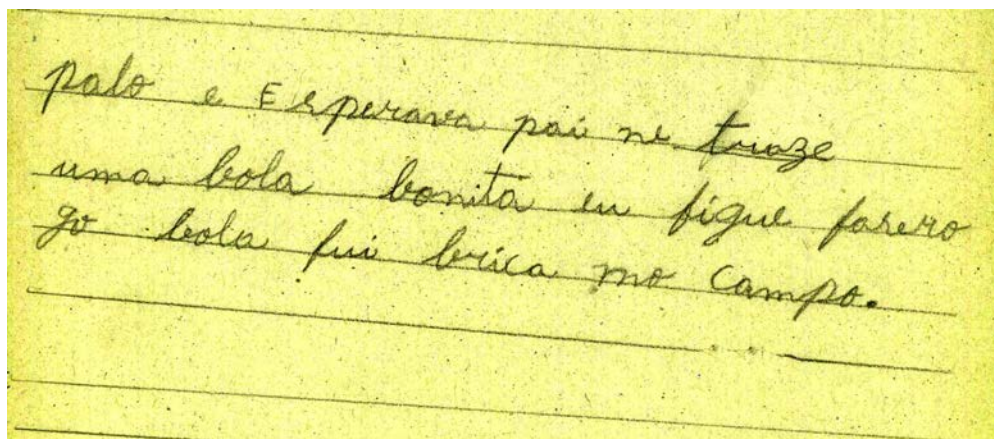 palo e Esperava pai me traze
uma bola bonita eu figue farero
go bola fui brica mo campo.